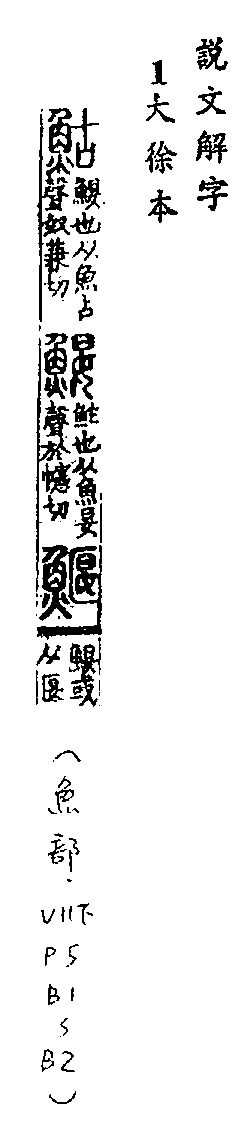 説文解字
1大徐本
鮎 鰋也从魚占
聲奴兼切
䱀 鮀也从魚妟
聲於幰切
鰋 䱀或
从匽
(魚部·VII下 P5 B1~B2)